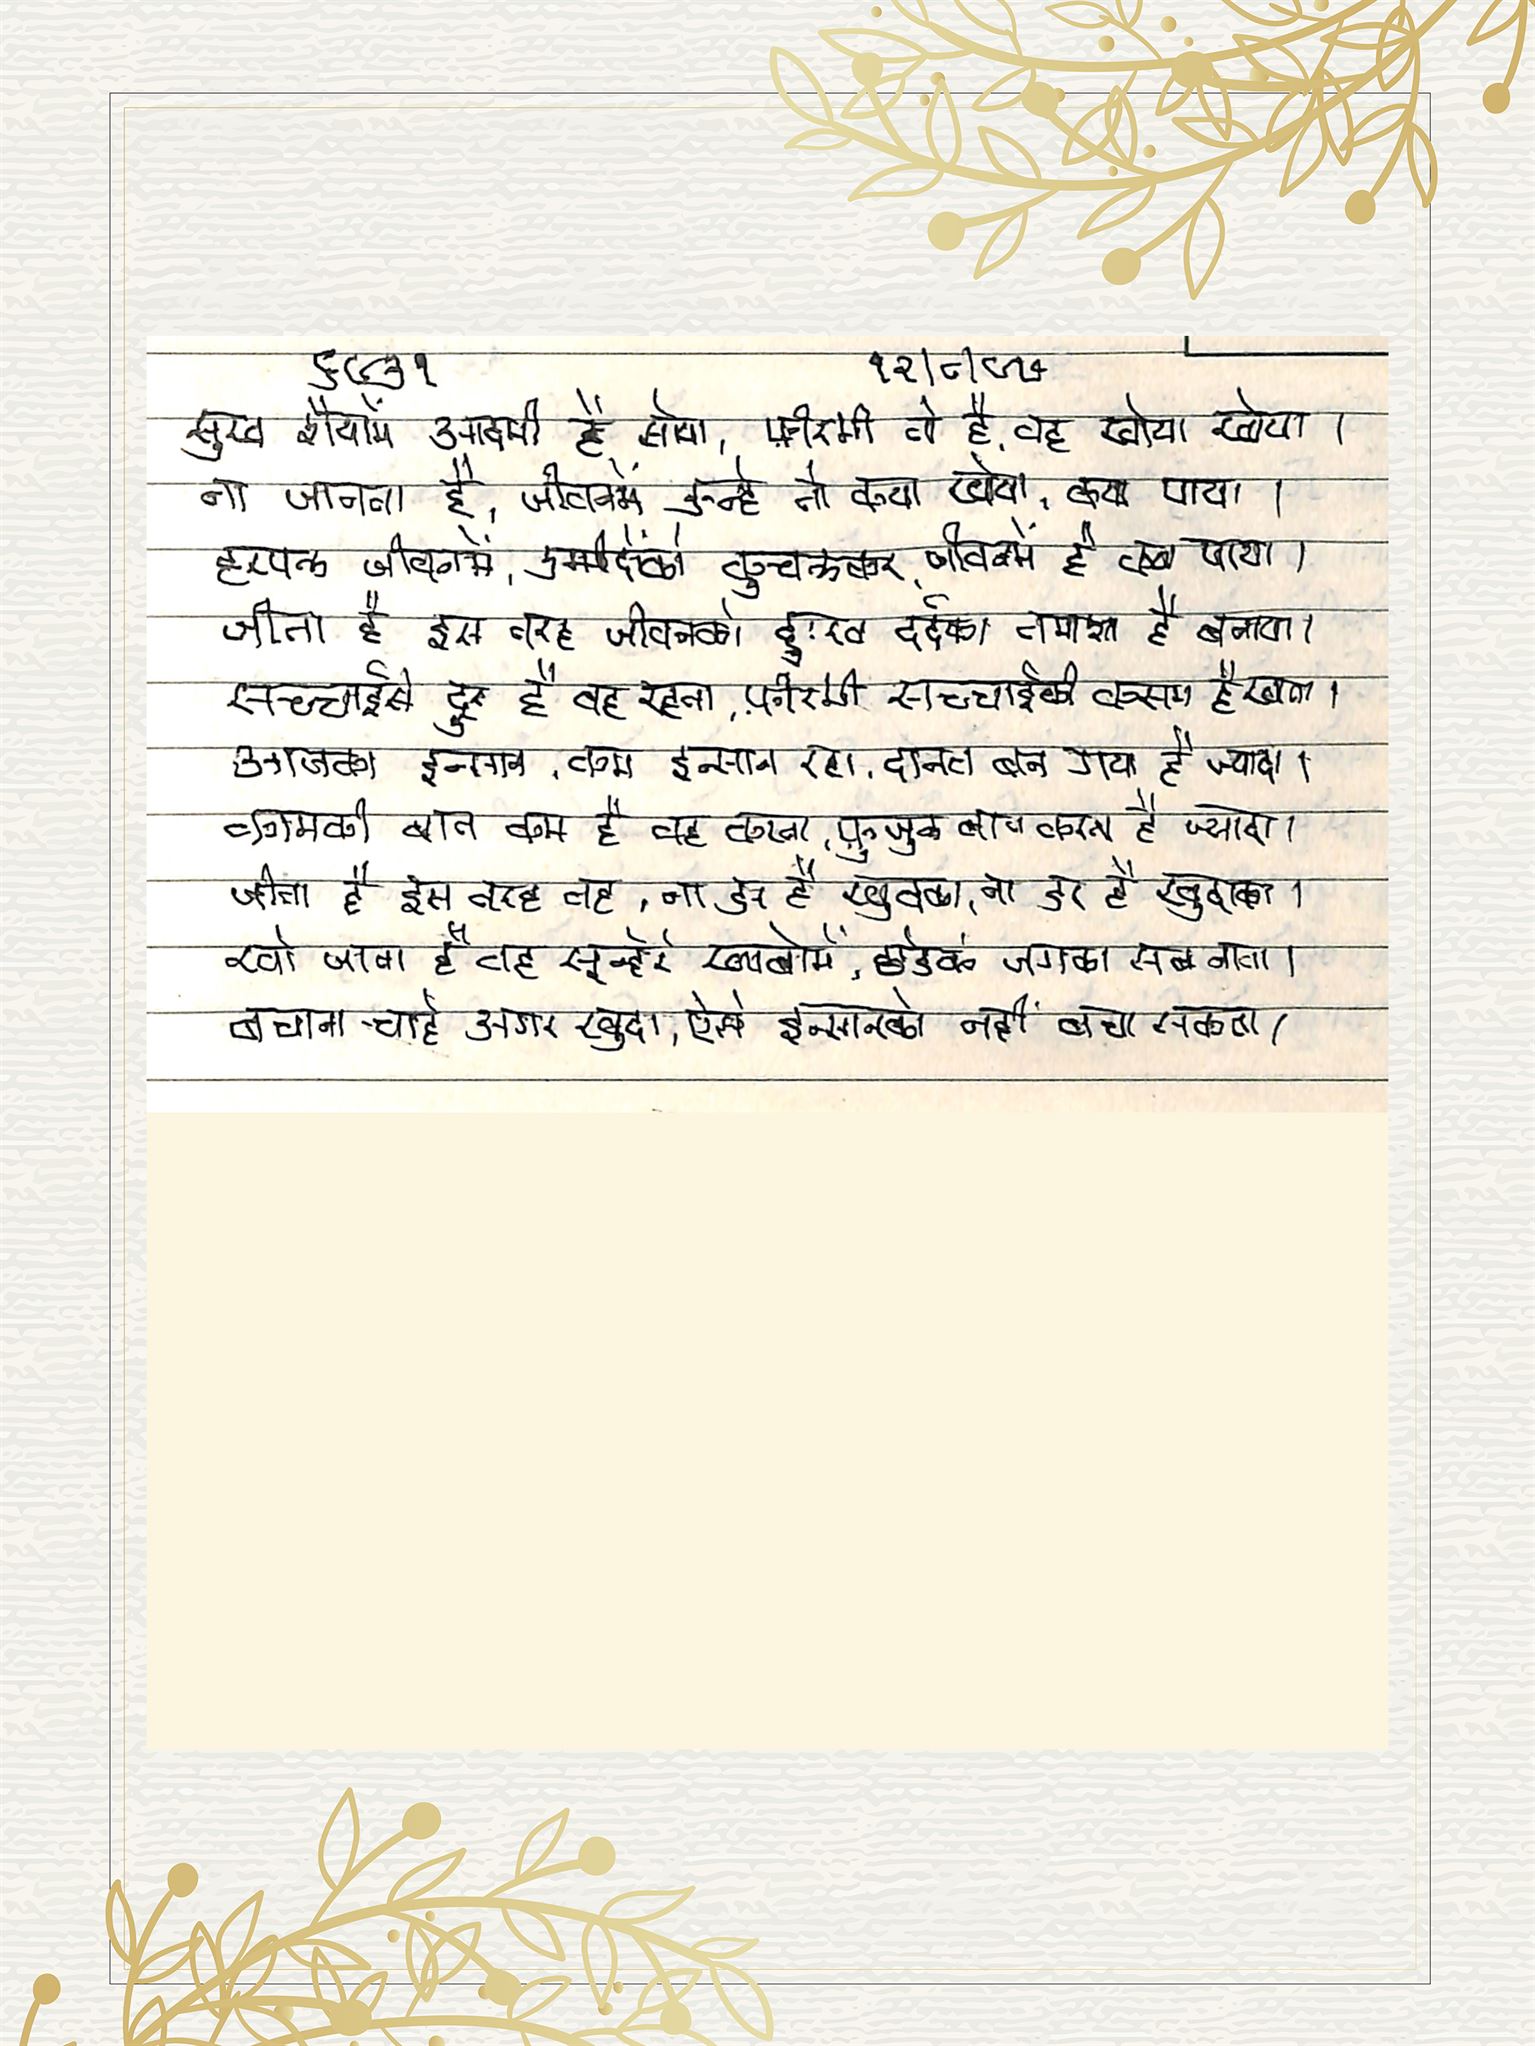 १२/८/८५
सुख शैयामें आदमी है सोया, फ़ीरभी वो है, वह खोया खोया ।
ना जानता है, जीवनमें उन्हे तो क्या खोया, क्या पाया ।
हरपल जीवनमें, उम्मीदोंको कुचलकर, जीवनमें है क्या पाया ।
जीता है इस तरह जीवनको दुःख दर्दका तमाशा है बनाया।
सच्चाईसे दूर है वह रहता, फ़ीरभी सच्चाईकी कसम है खाता ।
आजका इन्सान, कम इन्सान रहा, दानव बन गया है ज्यादा ।
कामकी बात कम है वह करता, फ़ुजुल बात करता है ज्यादा।
जीता है इस तरह वह, ना डर है खुदका, ना डर है खुदाका ।
खो जाता है वह सून्हेरे ख्वाबोमें, छोडके जगका सब नाता ।
बचाना चाहे अगर खुदा, ऐसे इन्सानको नहीं बचा सकता ।